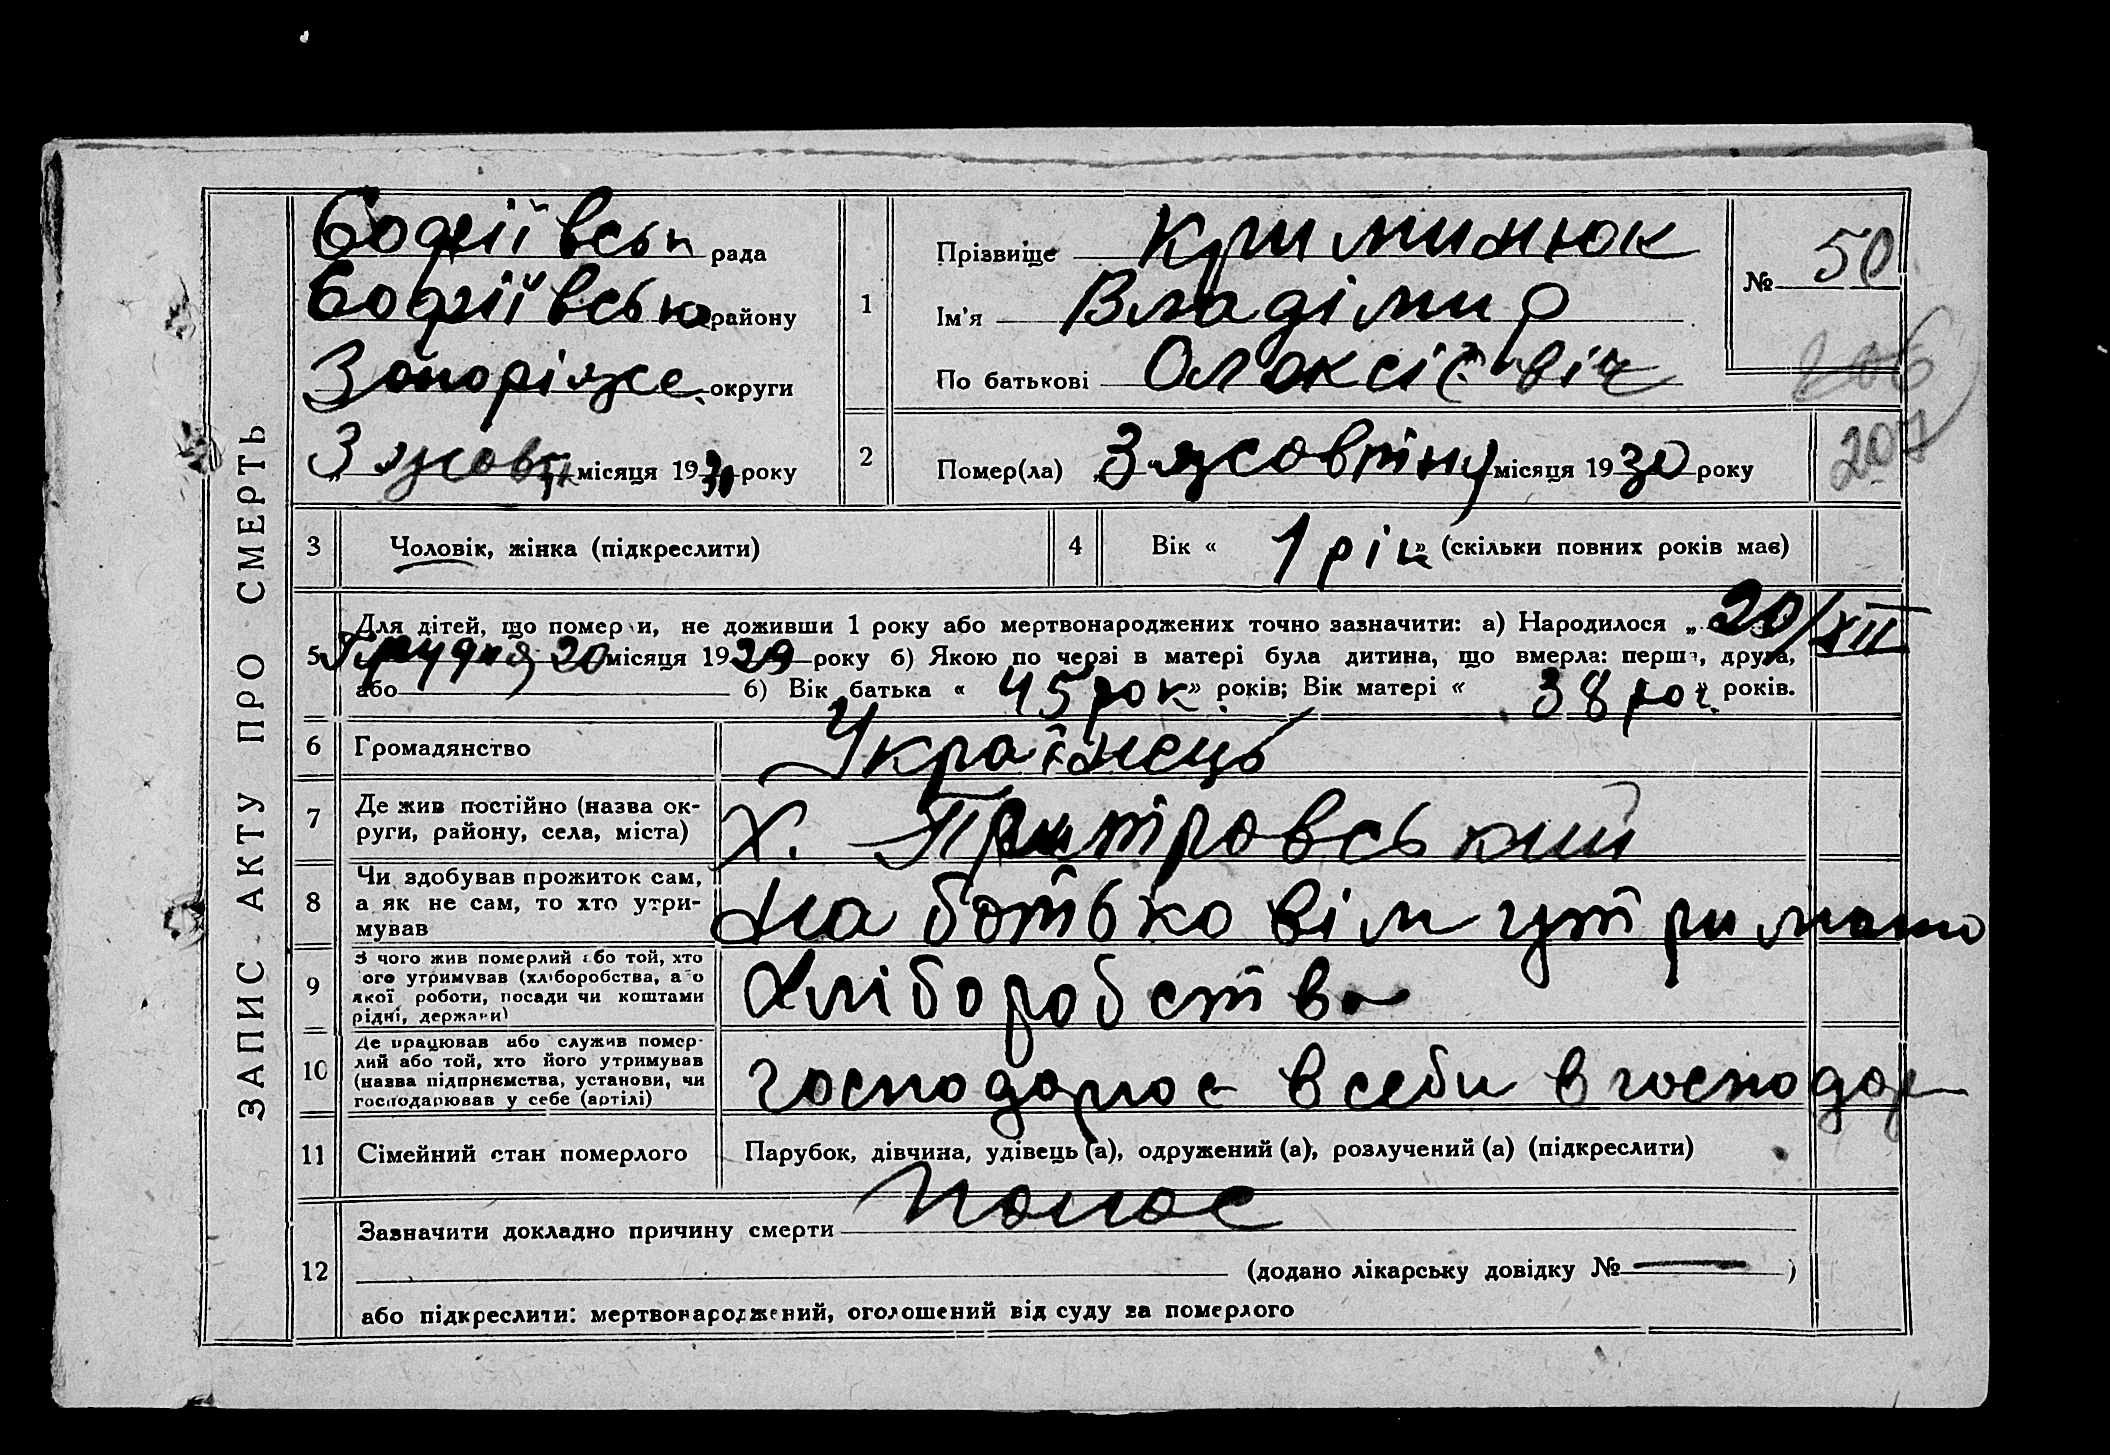 ЗАПИС АКТУ ПРО СМЕРТЬ
Софіївськ рада
Софіївсько району
Запоріже округи
„3 жовт місяця 1930 року
1
Прізвище Криминюк
Ім'я Владімир
По батькові Олексієвіч
№ 50
206
207
2 Помер(ла) „3" жовтня місяця 1930 року
3 Чоловік, жінка (підкреслити)
4 Вік « 1 рік » (скільки повних років має)
5 Для дітей, що померли, не доживши 1 року або мертвонароджених точно зазначити: а) Народилося „ 20/XII
Грудня 20 місяця 1929 року б) Якою по черзі в матері була дитина, що вмерла: перша, друга,
або б) Вік батька « 45 рок » років; Вік матері « 38 рок » років.
6 Громадянство Українець
7 Де жив постійно (назва округи, району, села, міста) х. Петровський
8 Чи здобував прожиток сам, а як не сам, то хто утримував на батьковім утримано
9 З чого жив померлий або той, хто його утримував (хліборобства, або якої роботи, посади чи коштами рідні, держави) Хліборобства
10 Де працював або служив померлий або той, хто його утримував (назва підприємства, установи, чи господарював у себе (артілі) господарює в себи в господар
11 Сімейний стан померлого Парубок, дівчина, удівець (а), одружений (а), розлучений (а) (підкреслити)
12 Зазначити докладно причину смерти Понос
(додано лікарську довідку № — )
або підкреслити: мертвонароджений, оголошений від суду за померлого